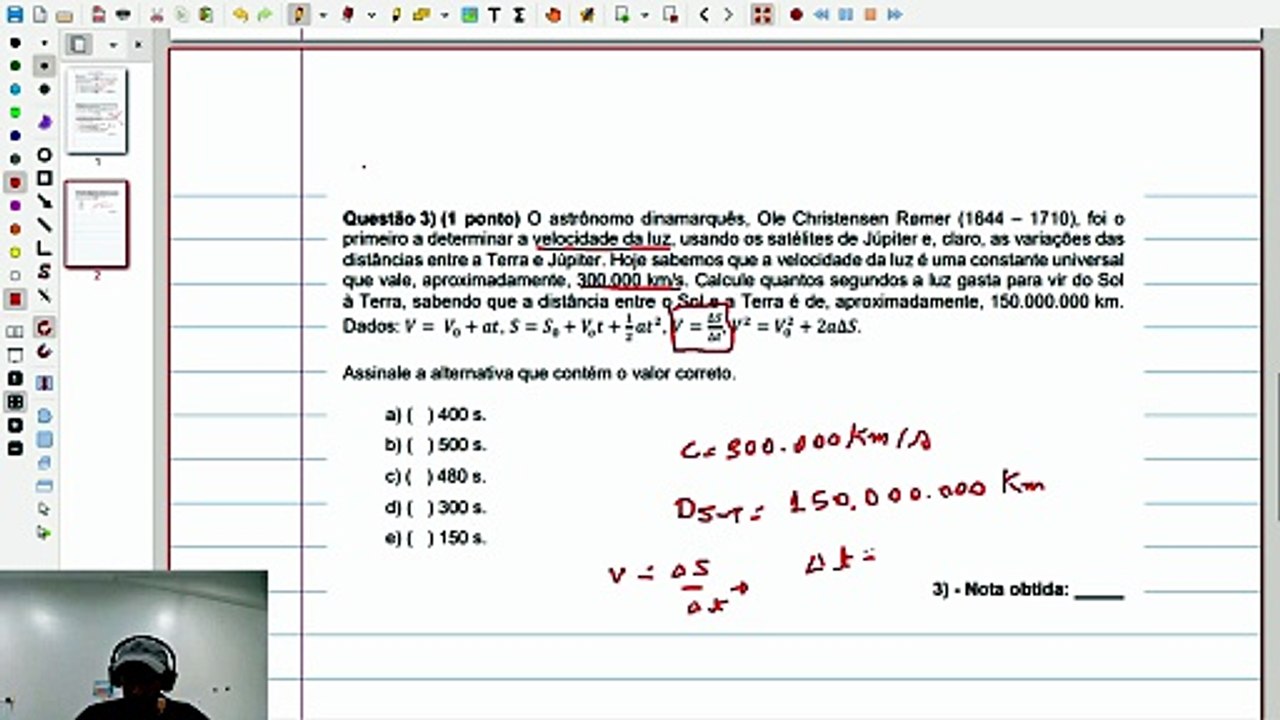 Questão 3) (1 ponto) O astrônomo dinamarquês, Ole Christensen Rømer (1644 – 1710), foi o
primeiro a determinar a velocidade da luz, usando os satélites de Júpiter e, claro, as variações das
distâncias entre a Terra e Júpiter. Hoje sabemos que a velocidade da luz é uma constante universal
que vale, aproximadamente, 300.000 km/s. Calcule quantos segundos a luz gasta para vir do Sol
à Terra, sabendo que a distância entre o Sol e a Terra é de, aproximadamente, 150.000.000 km.
Dados: V = V₀ + at, S = S₀ + V₀t + 1/2 at², V = ΔS/Δt, V² = V₀² + 2aΔS.
Assinale a alternativa que contém o valor correto.
a) ( ) 400 s.
b) ( ) 500 s.
c) ( ) 480 s.
d) ( ) 300 s.
e) ( ) 150 s.
C = 300.000 Km/s
D S-T = 150.000.000 Km
V = ΔS/Δt → Δt =
3) - Nota obtida: ______
1
2